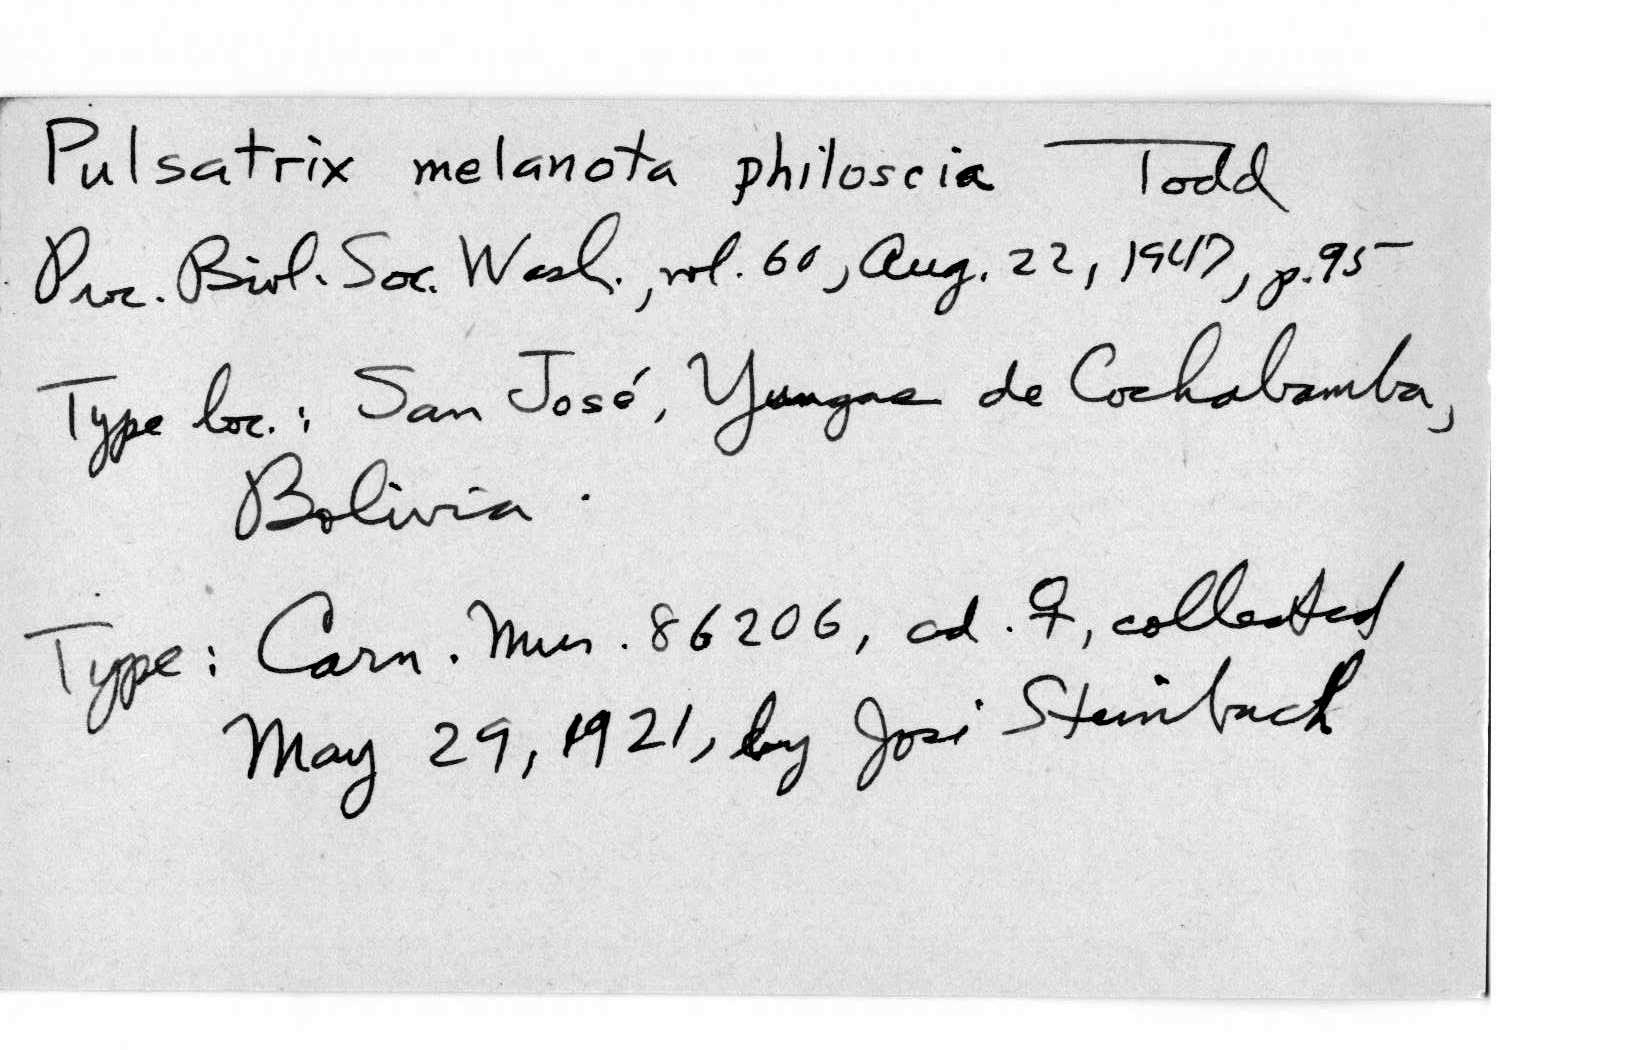 Pulsatrix melanota philoscia Todd
Proc. Biol. Soc. Wash., vol. 60, Aug. 22, 1947, p. 95
Type loc.: San José, Yungas de Cochabamba,
Bolivia.
Type: Carn. Mus. 86206, ad. ♀, collected
May 29, 1921, by José Steinbach